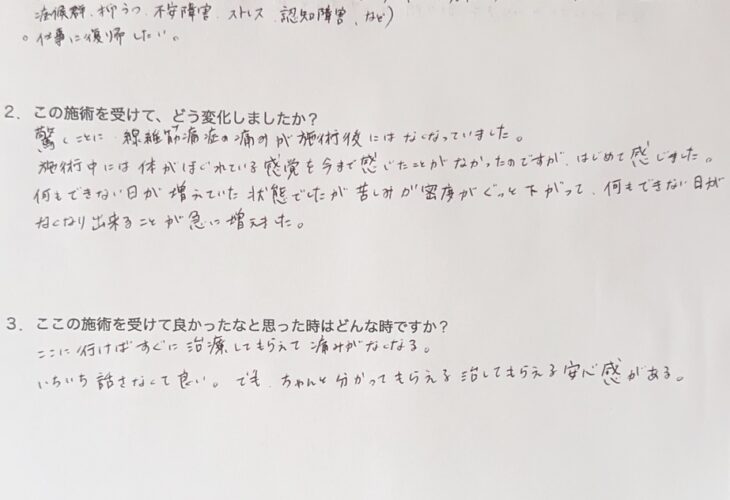 症候群、抑うつ、不安障害、ストレス、認知障害、など)
○ 仕事に復帰したい。
2. この施術を受けて、どう変化しましたか？
驚くことに、線維筋痛症の痛みが施術後にはなくなっていました。
施術中には体がほぐれている感覚を今まで感じたことがなかったのですが、はじめて感じました。
何もできない日が増えていた状態でしたが苦しみが密度がぐっと下がって、何もできない日が
なくなり出来ることが急に増えました。
3. ここの施術を受けて良かったなと思った時はどんな時ですか？
ここに行けばすぐに治療してもらえて痛みがなくなる。
いちいち話さなくて良い。でも、ちゃんと分かってもらえる治してもらえる安心感がある。